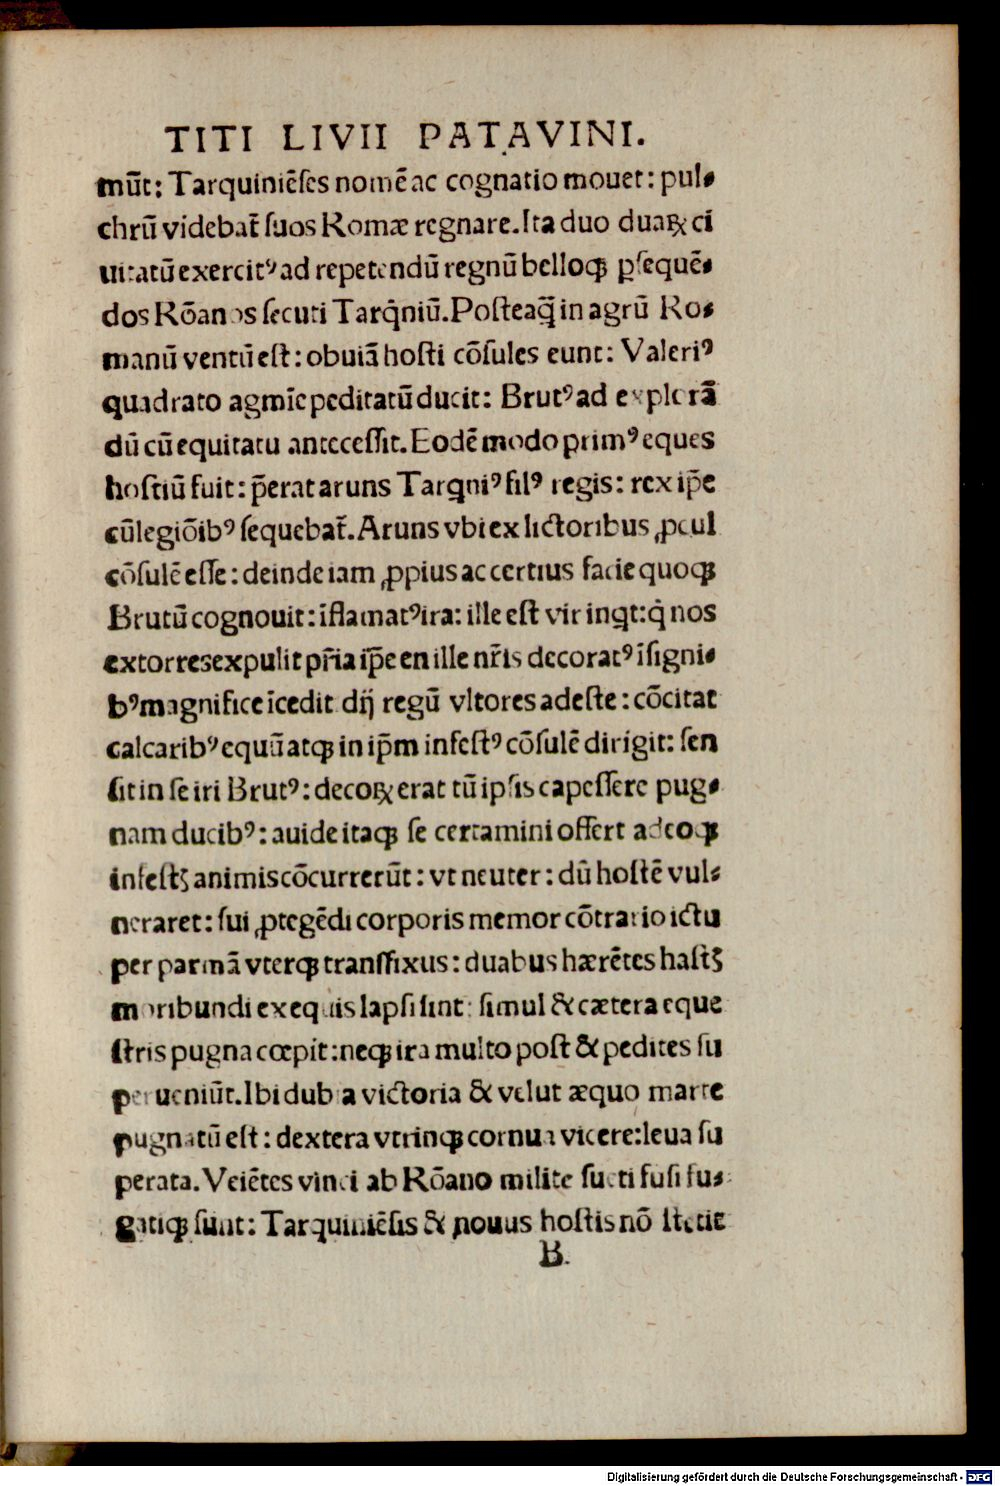 TITI LIVII PATAVINI.
mūt: Tarquiniēſes nomē ac cognatio mouet: pul-
chrū videbat̄ ſuos Romæ regnare. Ita duo duaꝝ ci
uitatū exercitꝰ ad repetendū regnū belloqꝫ ꝑſequē-
dos Rōanos ſecuti Tarq̄niū. Poſteaq̄ in agrū Ro-
manū ventū eſt: obuiā hoſti cōſules eunt: Valeriꝰ
quadrato agmīe peditatū ducit: Brutꝰ ad explorā
dū cū equitatu anteceſſit. Eodē modo primꝰ eques
hoſtiū fuit: p̄erat aruns Tarqniꝰ filꝰ regis: rex ip̄e
cū legiōibꝰ ſequebat̄. Aruns vbi ex lictoribus ꝓcul
cōſulē eſſe: deinde iam ꝓpius ac certius facie quoqꝫ
Brutū cognouit: īflamatꝰ ira: ille eſt vir inqt: q̄ nos
extorres expulit pr̄ia ip̄e en ille nr̄is decoratꝰ īſigni-
bꝰ magnifice īcedit dij regū vltores adeſte: cōcitat
calcaribꝰ equū atqꝫ in ip̄m infeſtꝰ cōſulē dirigit: ſen
ſit in ſe iri Brutꝰ: decoꝝ erat tū ipſis capeſſere pug-
nam ducibꝰ: auide itaqꝫ ſe certamini offert adeoqꝫ
infeſtꝭ animis cōcurrerūt: vt neuter: dū hoſtē vul-
neraret: ſui ꝓtegēdi corporis memor cōtrario ictu
per parmā vterqꝫ tranſſixus: duabus hærētes haſtꝭ
moribundi ex equis lapſi ſint: ſimul & cætera eque
ſtris pugna cœpit: neqꝫ ita multo poſt & pedites ſu
perueniūt. Ibi dubia victoria & velut æquo marte
pugnatū eſt: dextera vtrinqꝫ cornua vicere: leua ſu
perata. Veiētes vinci ab Rōano milite ſueti fuſi fu-
gatiqꝫ ſunt: Tarquiniēſis & nouus hoſtis nō ſtetit
B.
Digitalisierung gefördert durch die Deutsche Forschungsgemeinschaft - DFG